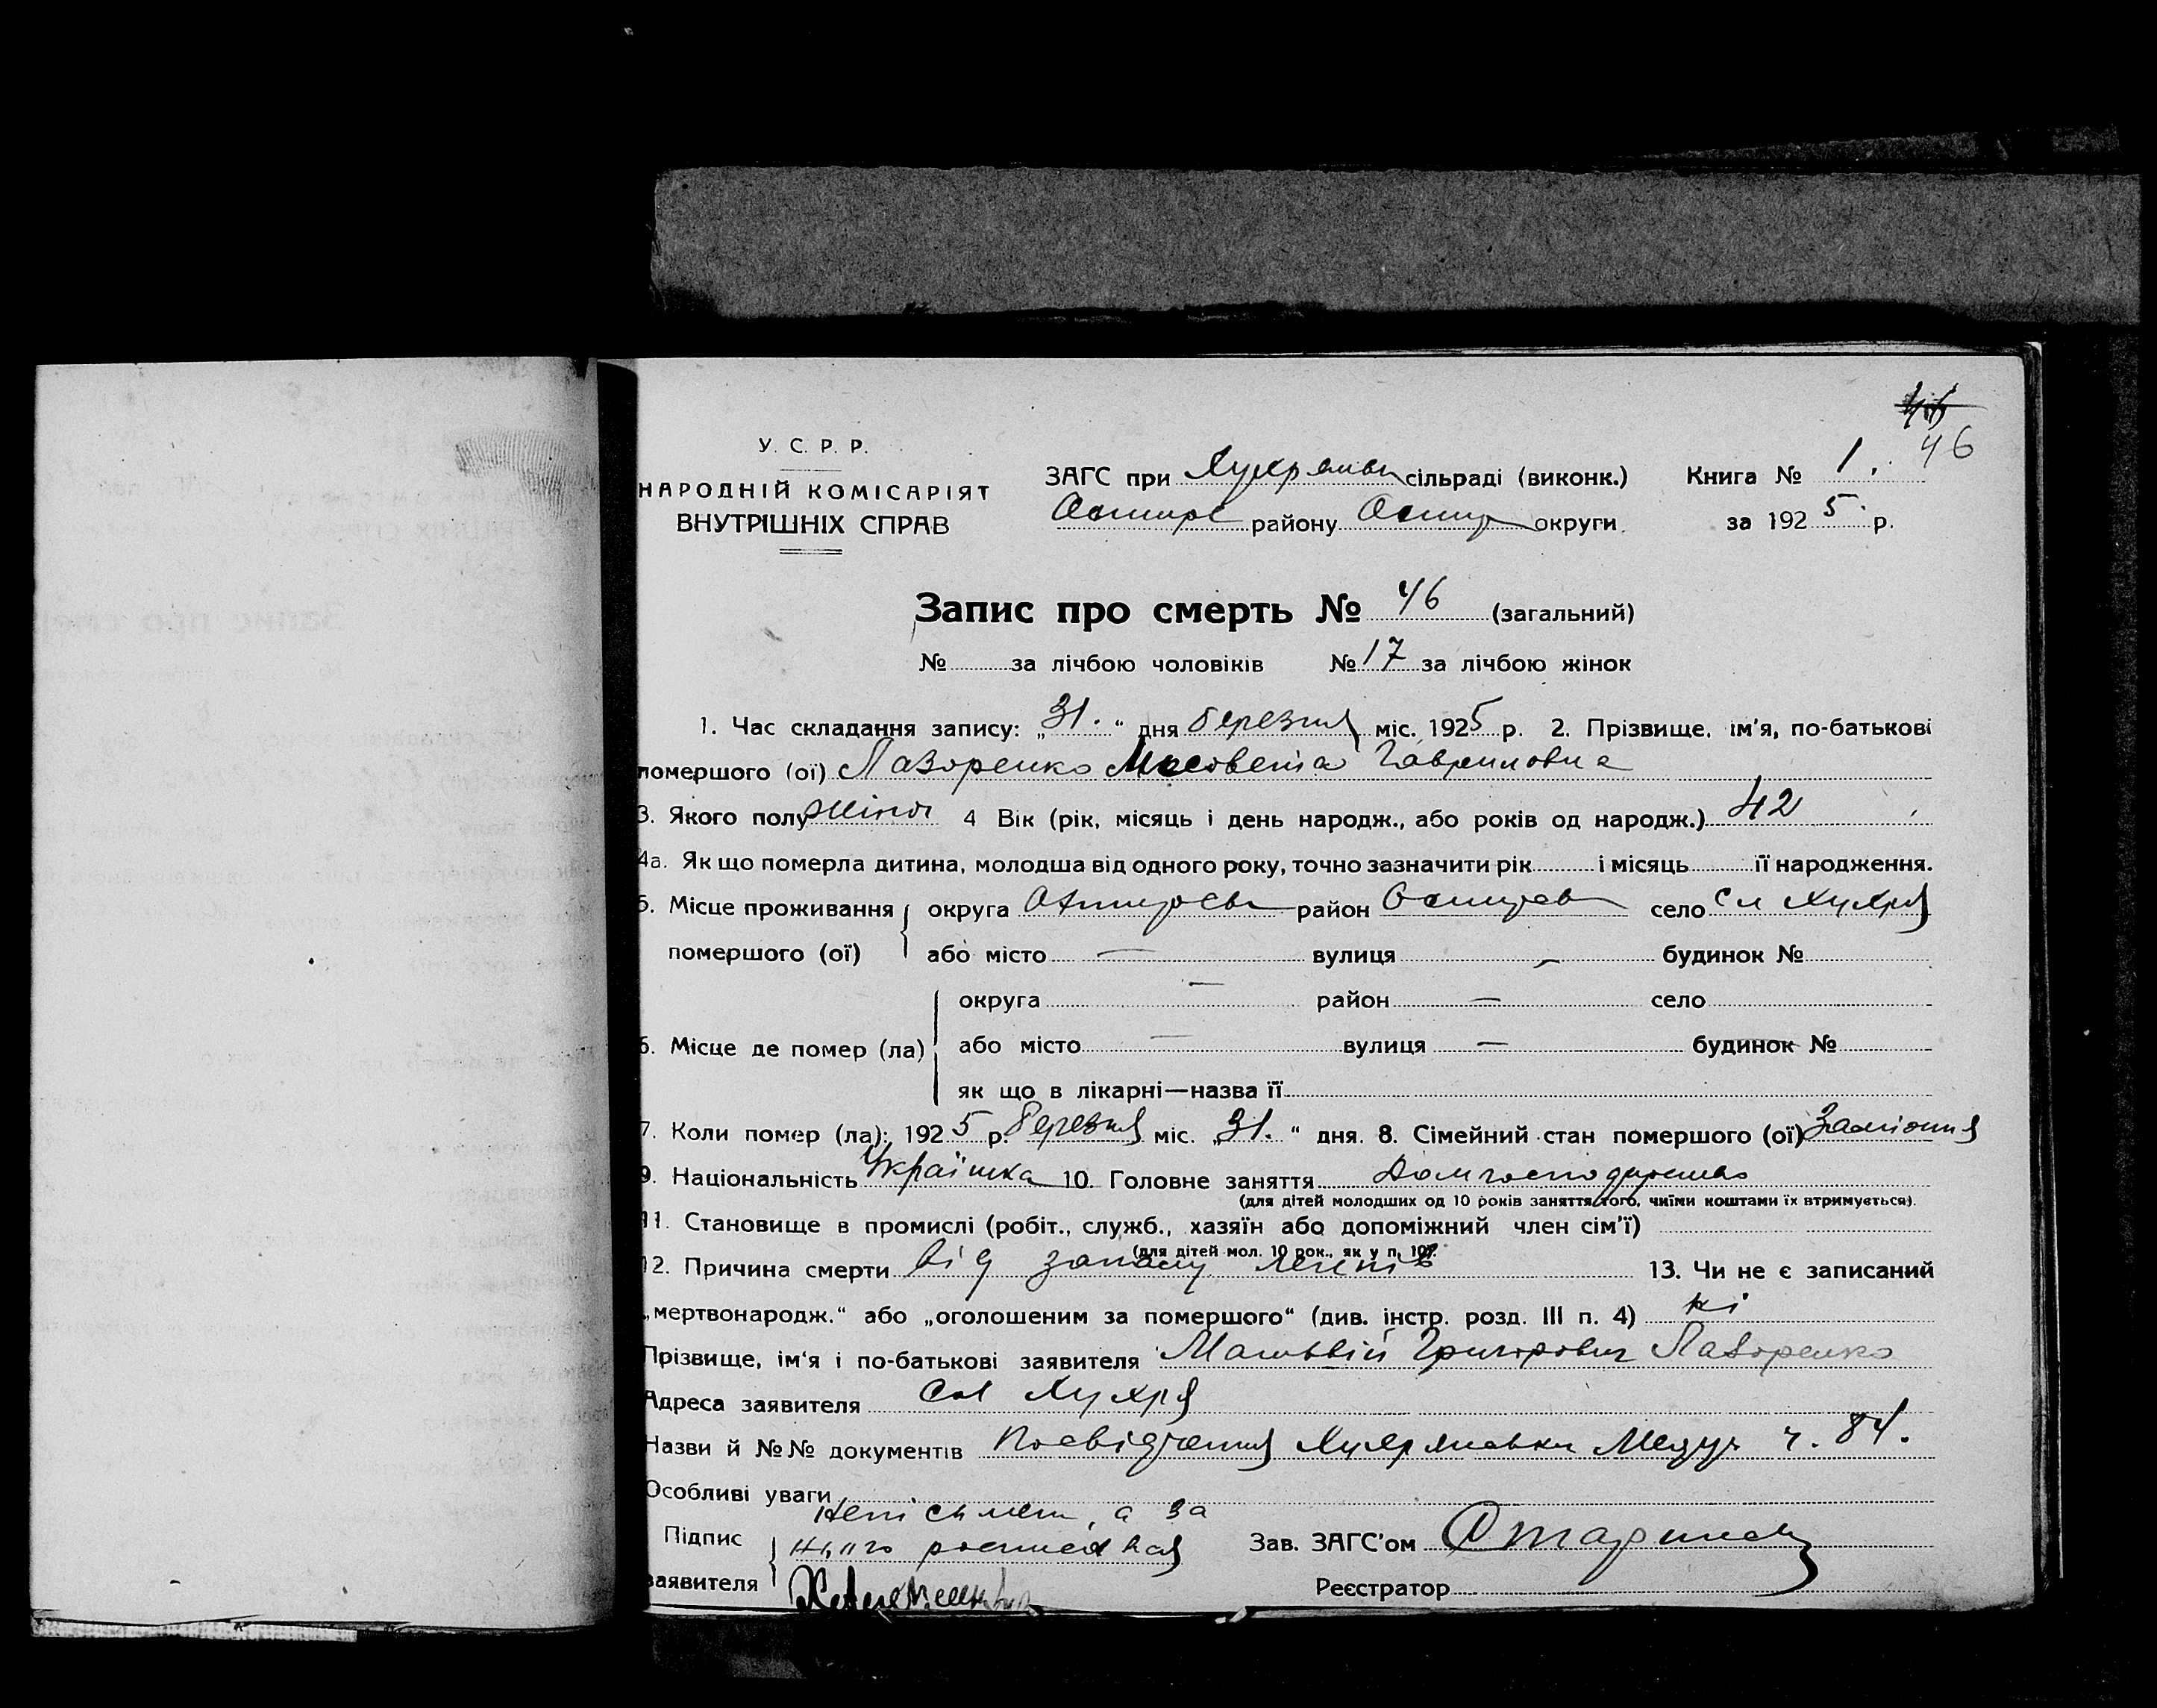 46
У. С. Р. Р.
НАРОДНІЙ КОМІСАРІЯТ
ВНУТРІШНІХ СПРАВ
ЗАГС при сільраді (виконк.) Книга № 1.
району округи за 1925 р.
Запис про смерть № 46 (загальний)
№ за лічбою чоловіків №17 за лічбою жінок
1. Час складання запису: „31.“ дня березня міс. 1925 р. 2. Прізвище, ім'я, по-батькові
помершого (ої) Лазоренко Гавриловна
3. Якого полу жіноч 4 Вік (рік, місяць і день народж., або років од народж.) 42
4а. Як що померла дитина, молодша від одного року, точно зазначити рік і місяць її народження.
5. Місце проживання округа район село сл Хухря
помершого (ої) або місто — вулиця — будинок №
округа — район — село
6. Місце де помер (ла) або місто — вулиця — будинок №
як що в лікарні—назва її
7. Коли помер (ла): 1925 р. березня міс. „31.“ дня. 8. Сімейний стан помершого (ої) Заміжня
9. Національність Українка 10. Головне заняття
(для дітей молодших од 10 років заняття того, чиїми коштами їх втримується).
11. Становище в промислі (робіт., служб., хазяїн або допоміжний член сім'ї)
(для дітей мол. 10 рок., як у п. 10).
12. Причина смерти від запалу легенів 13. Чи не є записаний
„мертвонародж.“ або „оголошеним за помершого“ (див. інстр. розд. III п. 4) ні
Прізвище, ім'я і по-батькові заявителя Матьвій Григорович Лазоренко
Адреса заявителя сл Хухря
Назви й №№ документів Посвідчення ч. 84.
Особливі уваги
Підпис неписьмен, а за
нього росписався
заявителя
Зав. ЗАГС'ом
Реєстратор